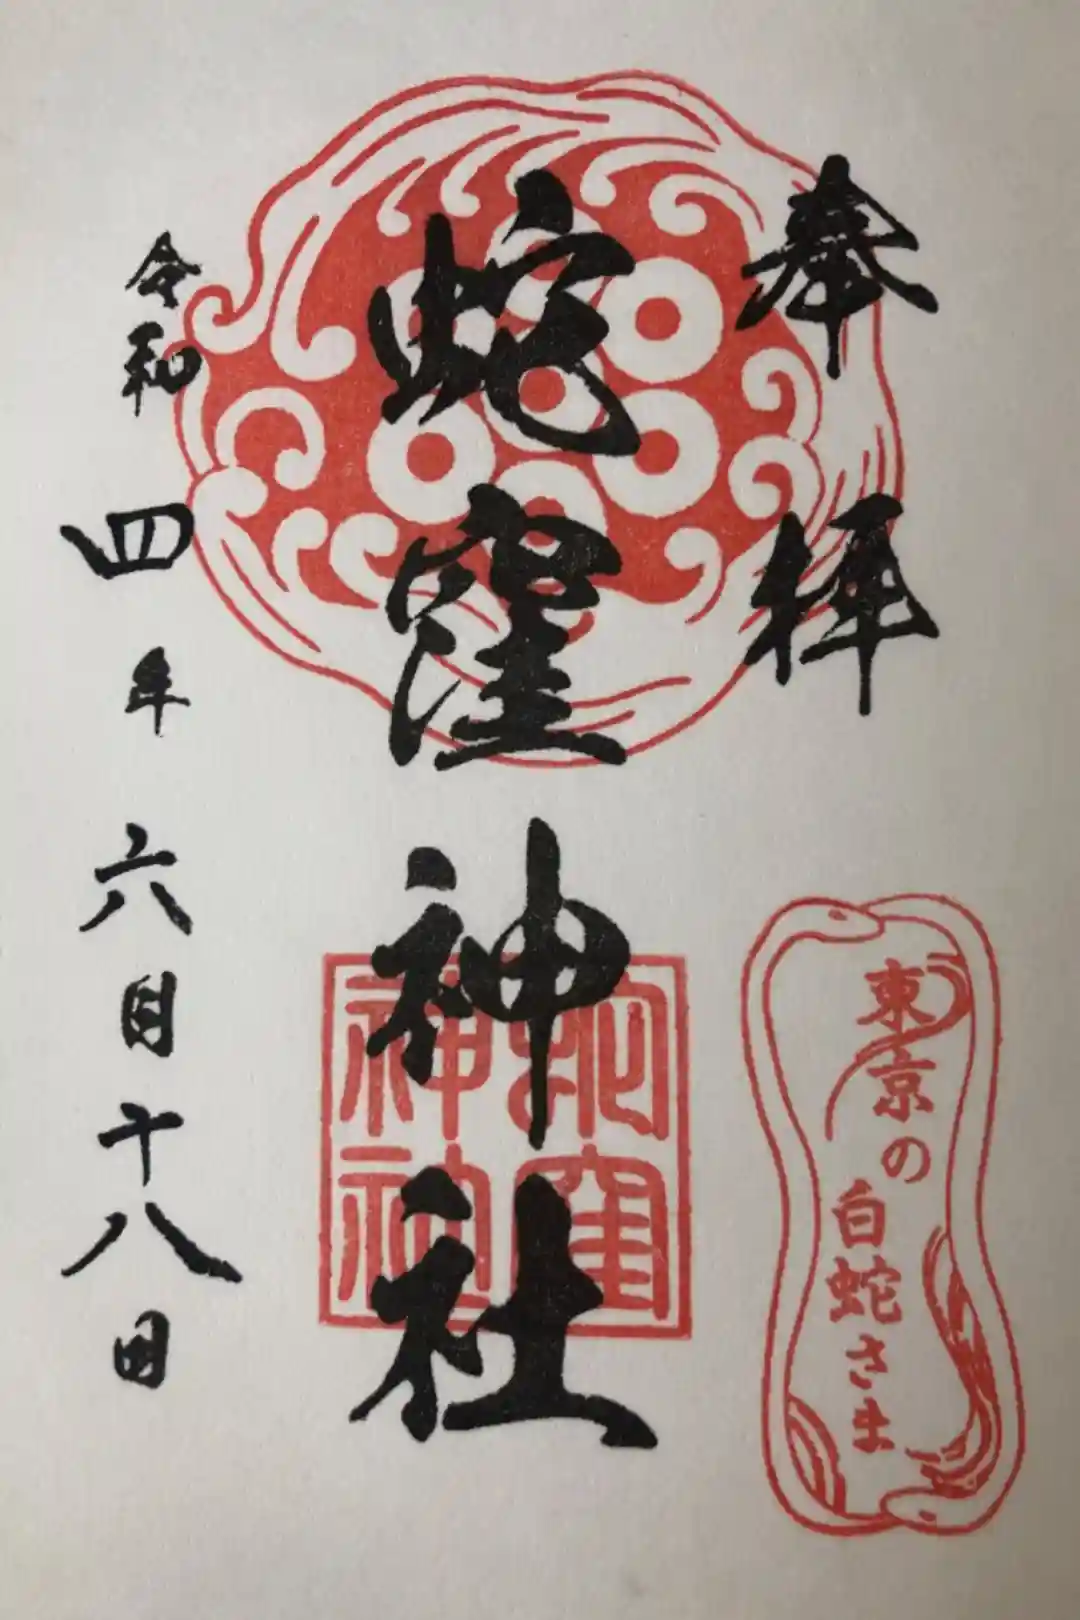 奉拝
蛇窪神社
令和四年六月十八日
蛇窪
神社
東京の
白蛇さま